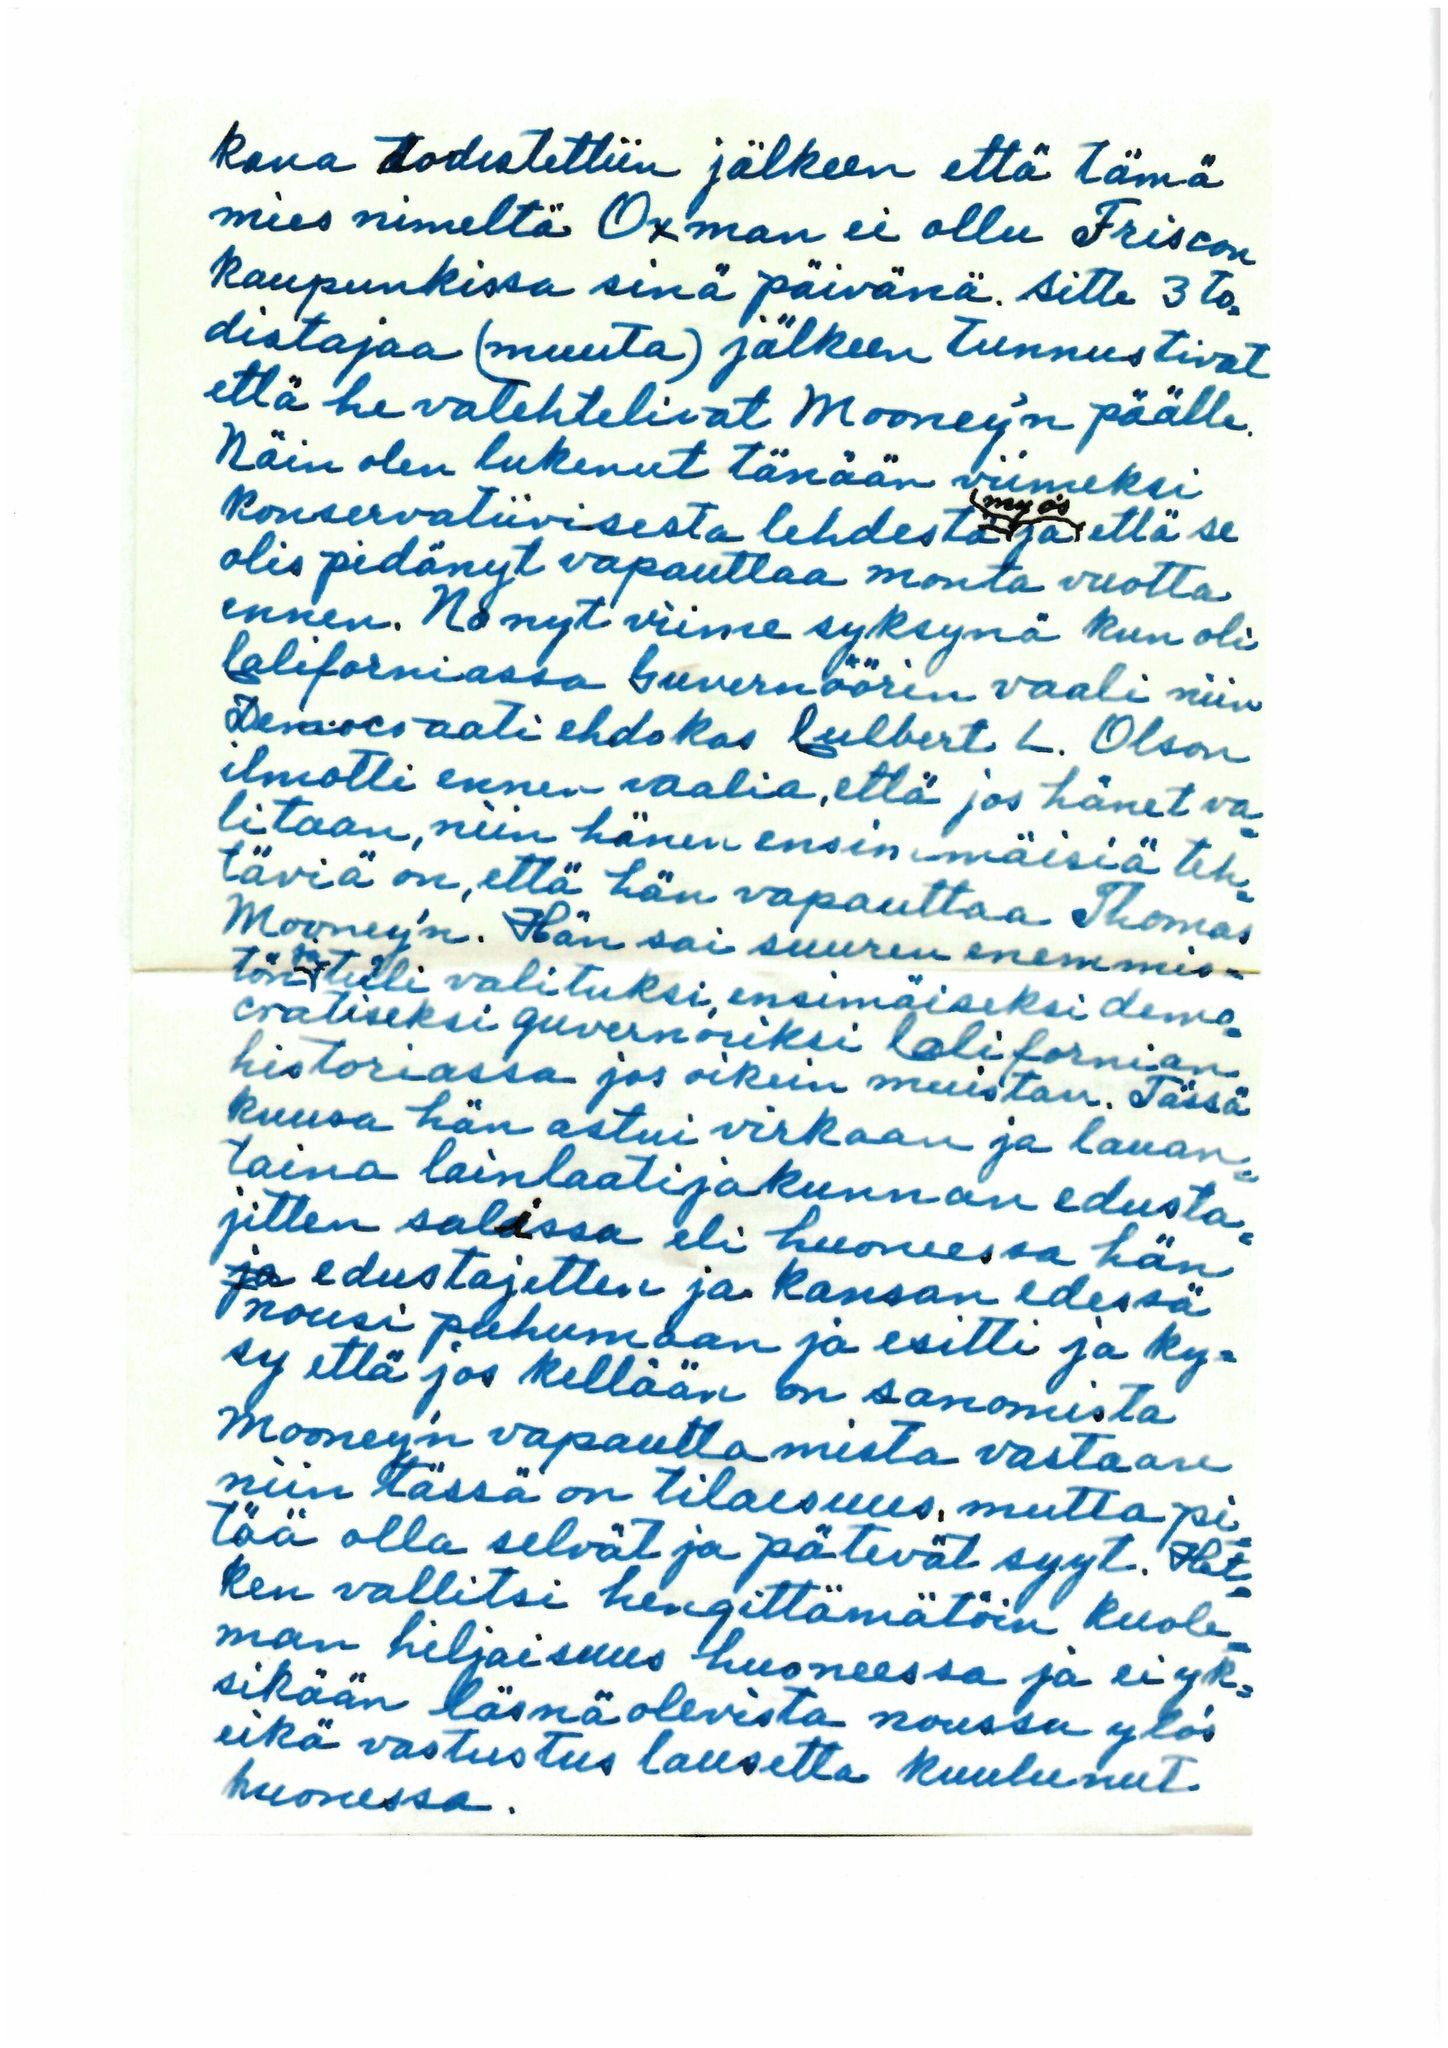 kana todistettiin jälkeen että tämä
mies nimeltä Oxman ei ollu Friscon
kaupunkissa sinä päivänä. Sitte 3 to=
distajaa (muuta) jälkeen tunnustivat
että he valehtelivat Mooney'n päälle.
Näin olen lukenut tänään viimeksi
konservatiivisesta lehdestä myös ja että se
olis pidänyt vapauttaa monta vuotta
ennen. No nyt viime syksynä kun oli
Californiassa Guvernöörin vaali niin
Democraati ehdokas Culbert L. Olson
ilmotti ennen vaalia, että jos hänet va=
litaan, niin hänen ensimmäisiä teh=
täviä on, että hän vapauttaa Thomas
Mooney'n. Hän sai suuren enemmis=
tön ja tuli valituksi, ensimäiseksi demo=
cratiseksi guvernöriksi Californian
historiassa jos oikein muistan. Tässä
kuusa hän astui virkaan ja lauan=
taina lainlaatijakunnan edusta=
jitten salissa eli huoneessa hän
ja edustajetten ja kansan edessä
nousi puhumaan ja esitti ja ky=
sy että jos kellään on sanomista
Mooney'n vapauttamista vastaan
niin tässä on tilaisuus, mutta pi=
tää olla selvät ja pätevät syyt. Het=
ken vallitsi hengittämätöin kuole=
man hiljaisuus huoneessa ja ei yk=
sikään läsnäolevista noussu ylös
eikä vastustus lausetta kuulunut
huonessa.